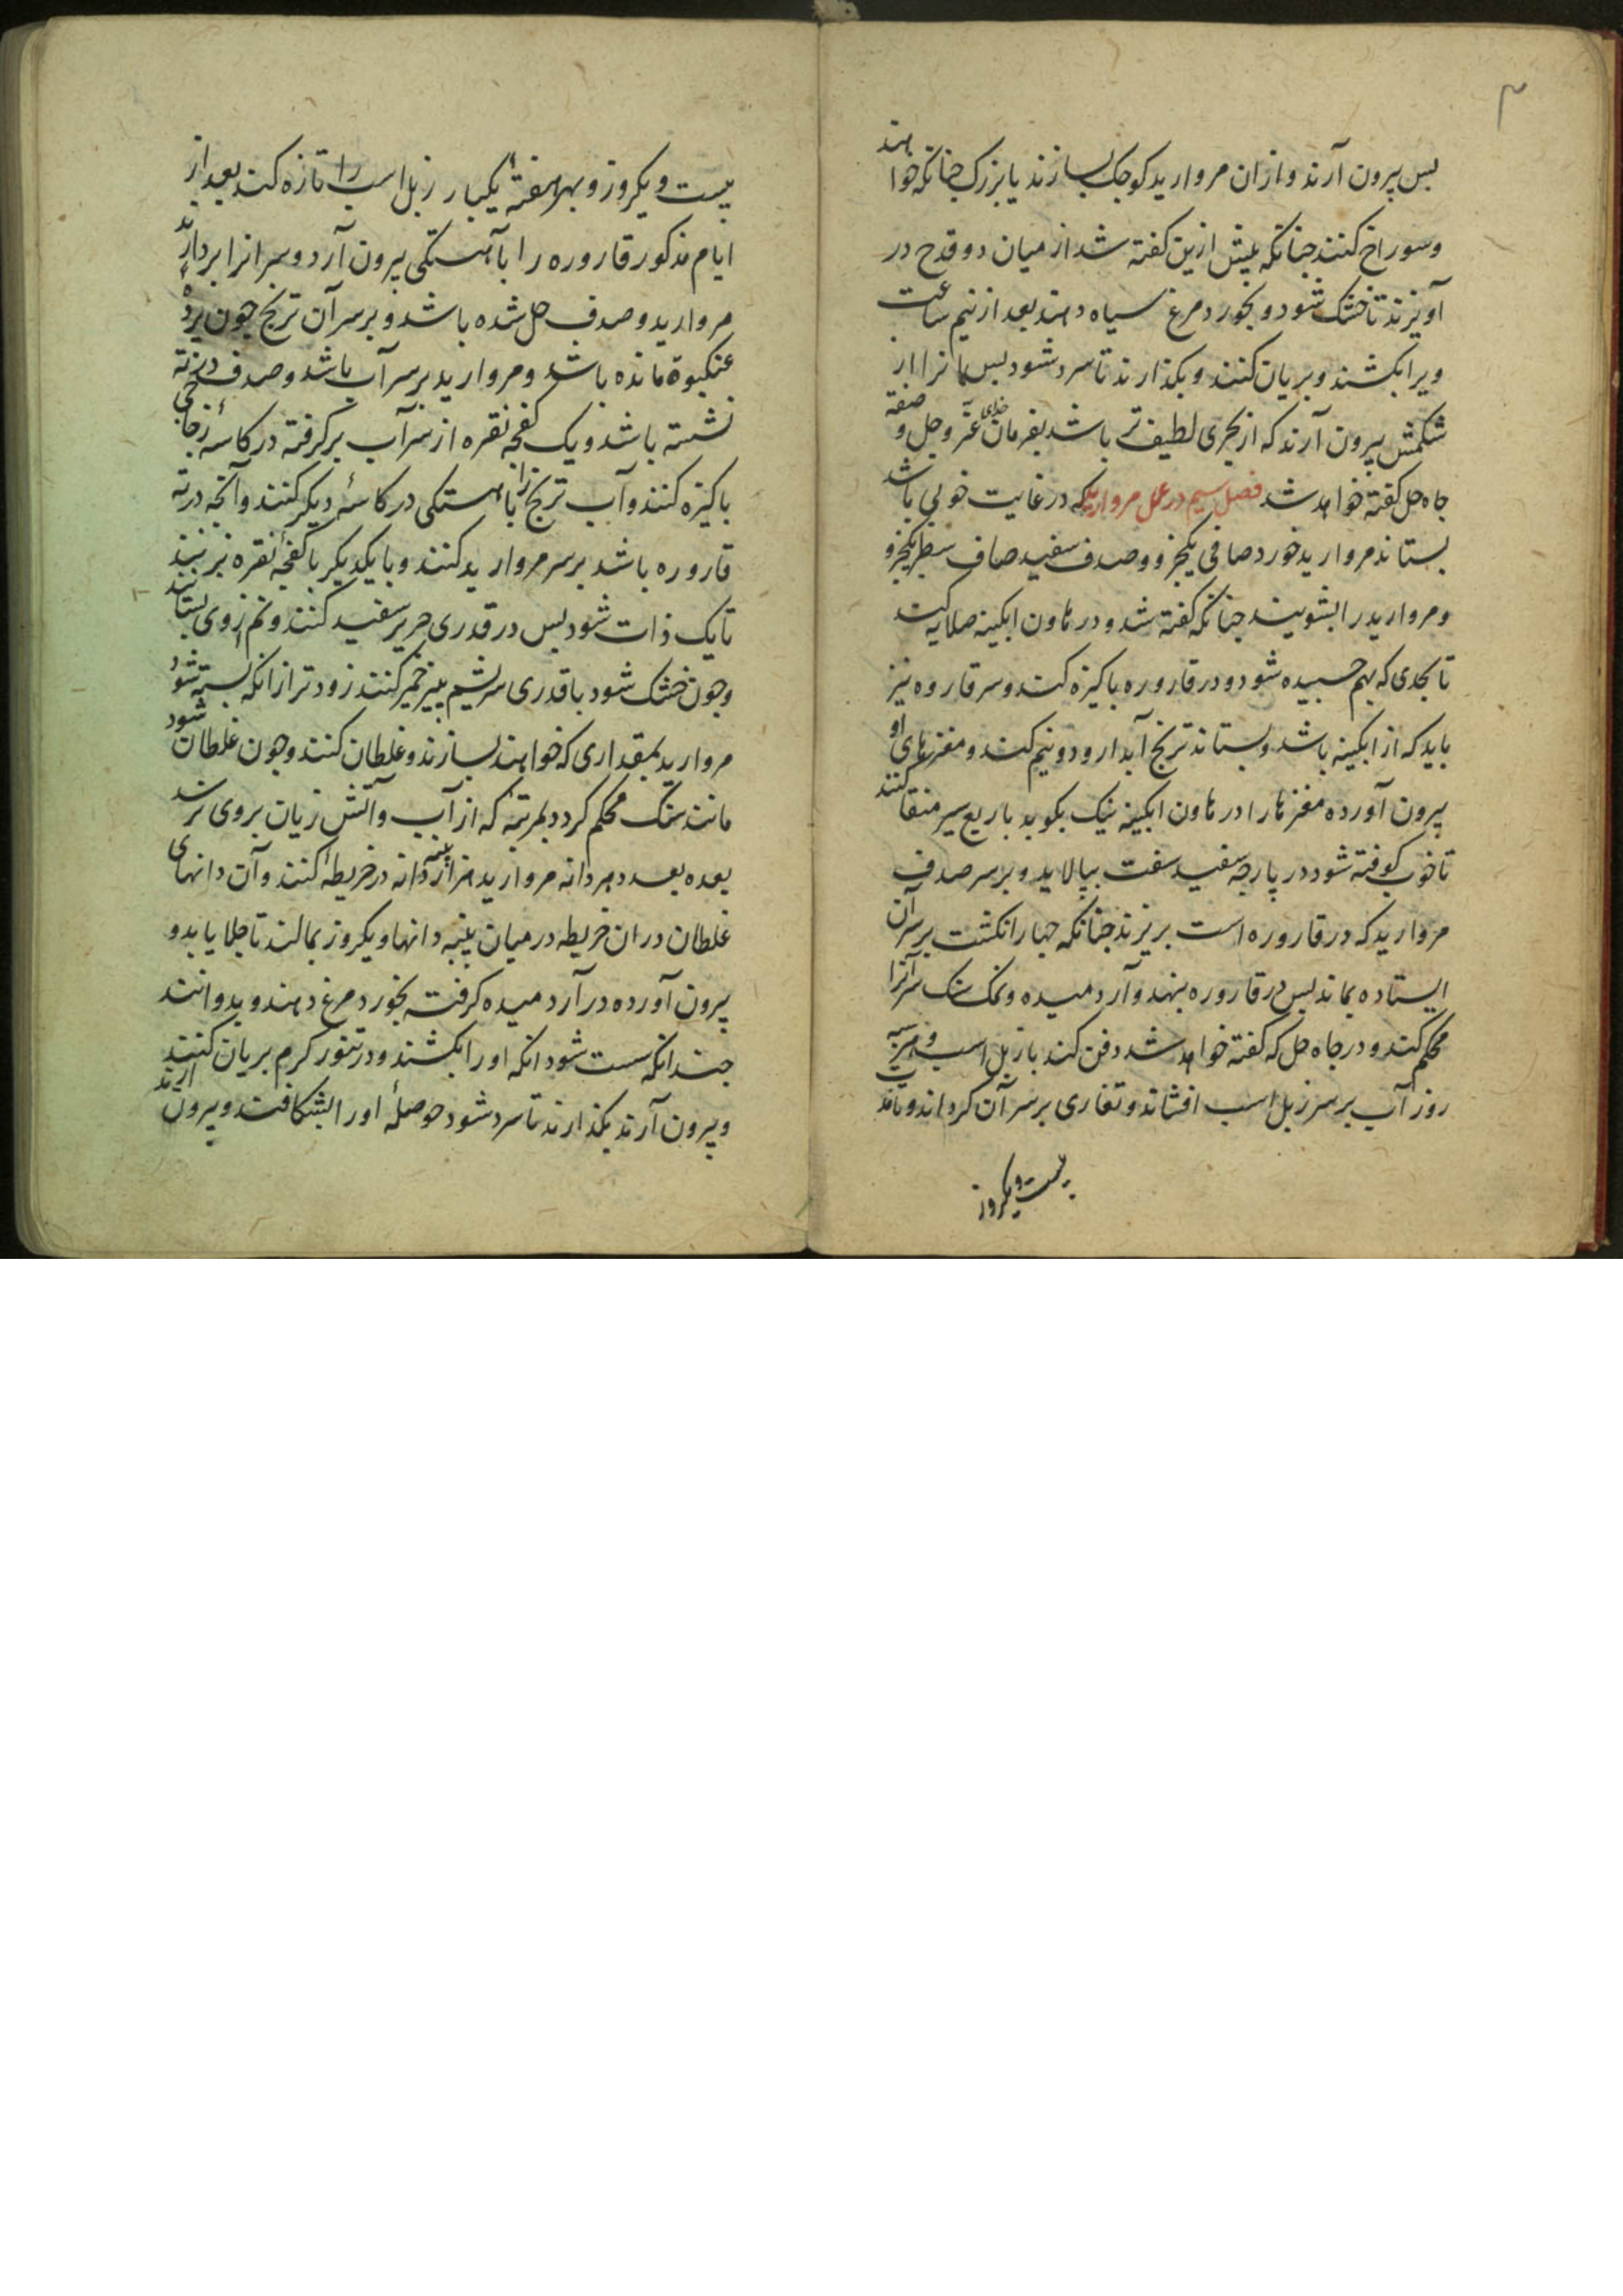 ۳
بس بیرون آرند و ازان مروارید کوجک بسازند یا بزرک جنانکه خواهند
و سوراخ کنند جنانکه بیش ازین کفته شد از میان دو قدح در
آویزند تا خشک شود و بخورد مرغ سیاه دهند بعد از نیم ساعت
ویرا بکشند و بریان کنند و بکذارند تا سرد شود بس انرا از
شکمش بیرون آرند که از بحری لطیف تر باشد بفرمان خدای عز و جل و صفة
جاه حل کفته خواهد شد فصل سیم در عمل مروارید که در غایت خوبی باشد
بستاند مروارید خورد صافی یکجزو و صدف سفید صاف سطبر یکجزو
و مروارید را بشویند جنانکه کفته شد و در هاون ابکینه صلایه کند
تا بحدی که بهم جسبیده شود و در قاروره باکیزه کند و سر قاروره نیز
باید که از ابکینه باشد و بستاند ترنج آبدار و دو نیم کند و مغزهای او
بیرون آورده مغزها را در هاون ابکینه نیک بکوبد با ربع سیر منقا کنند
تا خوب کوفته شود در پارجه سفید سفت بپالاید و بر سر صدف
مروارید که در قاروره است بریزند جنانکه جهار انکشت بر سر آن
ایستاده بماند بس در قاروره بنهد و آرد میده و نمک سنک سر آنرا
محکم کند و در جاه حل که کفته خواهد شد دفن کند با زبل اسب و هر سه
روز آب بر سر زبل اسب افشاند و تغاری بر سر آن کرداند و تا
بیست و یکروز
بیست و یکروز و بهر هفتهٔ یکبار زبل اسب را تازه کند بعد از
ایام مذکور قاروره را بآهستکی بیرون آرد و سر انرا بردارند
مروارید و صدف حل شده باشد و بر سر آن ترنج جون پردهٔ
عنکبوة مانده باشد و مروارید بر سر آب باشد و صدف در ته
نشسته باشد و یک کفجه نقره از سر آب برکرفته در کاسهٔ زجاجی
باکیزه کنند و آب ترنج را بآهستکی در کاسهٔ دیکر کنند و آنجه در ته
قاروره باشد بر سر مروارید کنند و با یکدیکر با کفجهٔ نقره بزنند
تا یک ذات شود بس در قدری حریر سفید کنند و نم ازوی بستانند
و جون خشک شود با قدری سریشم پنیر خمیر کنند زودتر از انکه بسته شود
مروارید بمقداری که خواهند بسازند و غلطان کنند و جون غلطان شود
مانند سنک محکم کردد بمرتبهٔ که از آب و آتش زیان بروی نرسد
بعده بعدد هر دانه مروارید هزار پنبه دانه در خریطهٔ کنند و آن دانهای
غلطان در ان خریطه در میان پنبه دانها و یکروز بمالند تا جلا یابد و
بیرون آورده در آرد میده کرفته بخورد مرغ دهند و بدوانند
جندانکه سست شود انکه او را بکشند و در تنور کرم بریان کنند
و بیرون آرند بکذارند تا سرد شود حوصلهٔ او را بشکافند و بیرون ارند